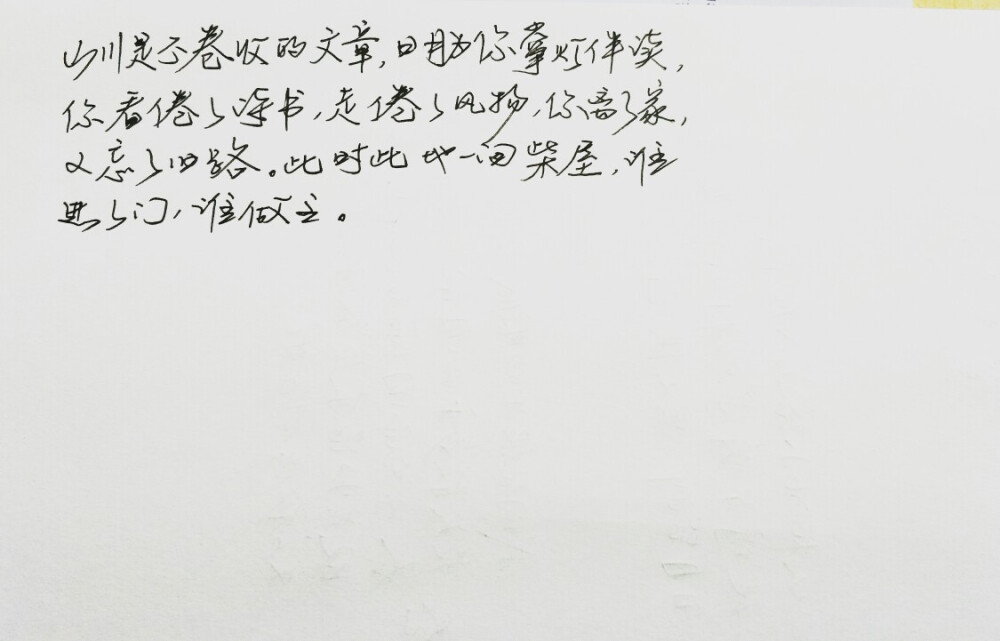 山川是不卷收的文章,日月为你掌灯伴读,
你看倦了诗书,走倦了风物,你离了家,
又忘了旧路。此时此地一间柴屋,谁
进了门,谁做主。